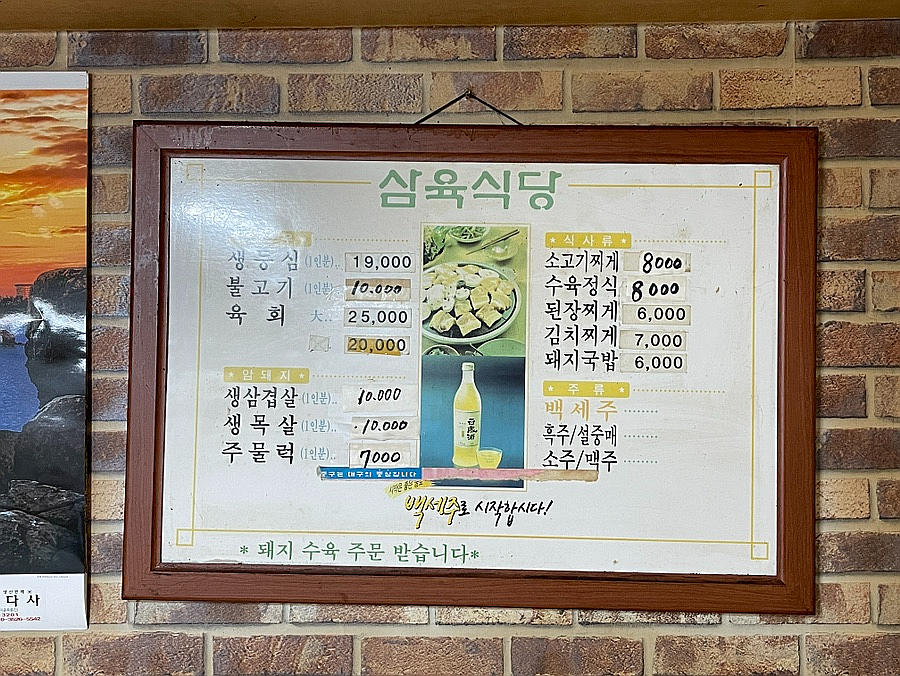 삼육식당
생등심 (1인분).. 19,000
불고기 (1인분) 10.000
육회 大.. 25,000
20,000
암돼지
생삼겹살 (1인분).. 10.000
생목살 (1인분).. 10.000
주물럭 (1인분).. 7000
식사류
소고기찌게 8000
수육정식 8000
된장찌게 6,000
김치찌게 7,000
돼지국밥 6,000
주류
백세주
흑주/설중매
소주/맥주
중구는 대구의 중심입니다
백세주로 시작합시다!
* 돼지 수육 주문 받습니다*
다사
3201